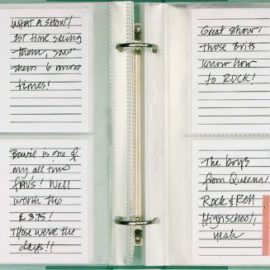 WHAT A SHOW!
1st time seeing
them, saw
them 6 more
times!
Great show!
Those Brits
know how
to ROCK!
Bowie is one of
my all time
favs! Well
worth the
£ 3.75!
Those were the
days!!
The boys
from Queens!
Rock & Roll
Highschool,
yeah